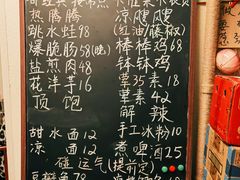 热腾腾
跳水蛙98
爆脆肠58(晚)
盐煎肉48
花洋芋16
顶饱
甜水面12
凉面12
碰运气
凉飕飕
(红油/藤椒)
棒棒鸡68
钵钵鸡
荤35素18
荤素42
解辣
手工冰粉10
煮啤酒25
(提前定)